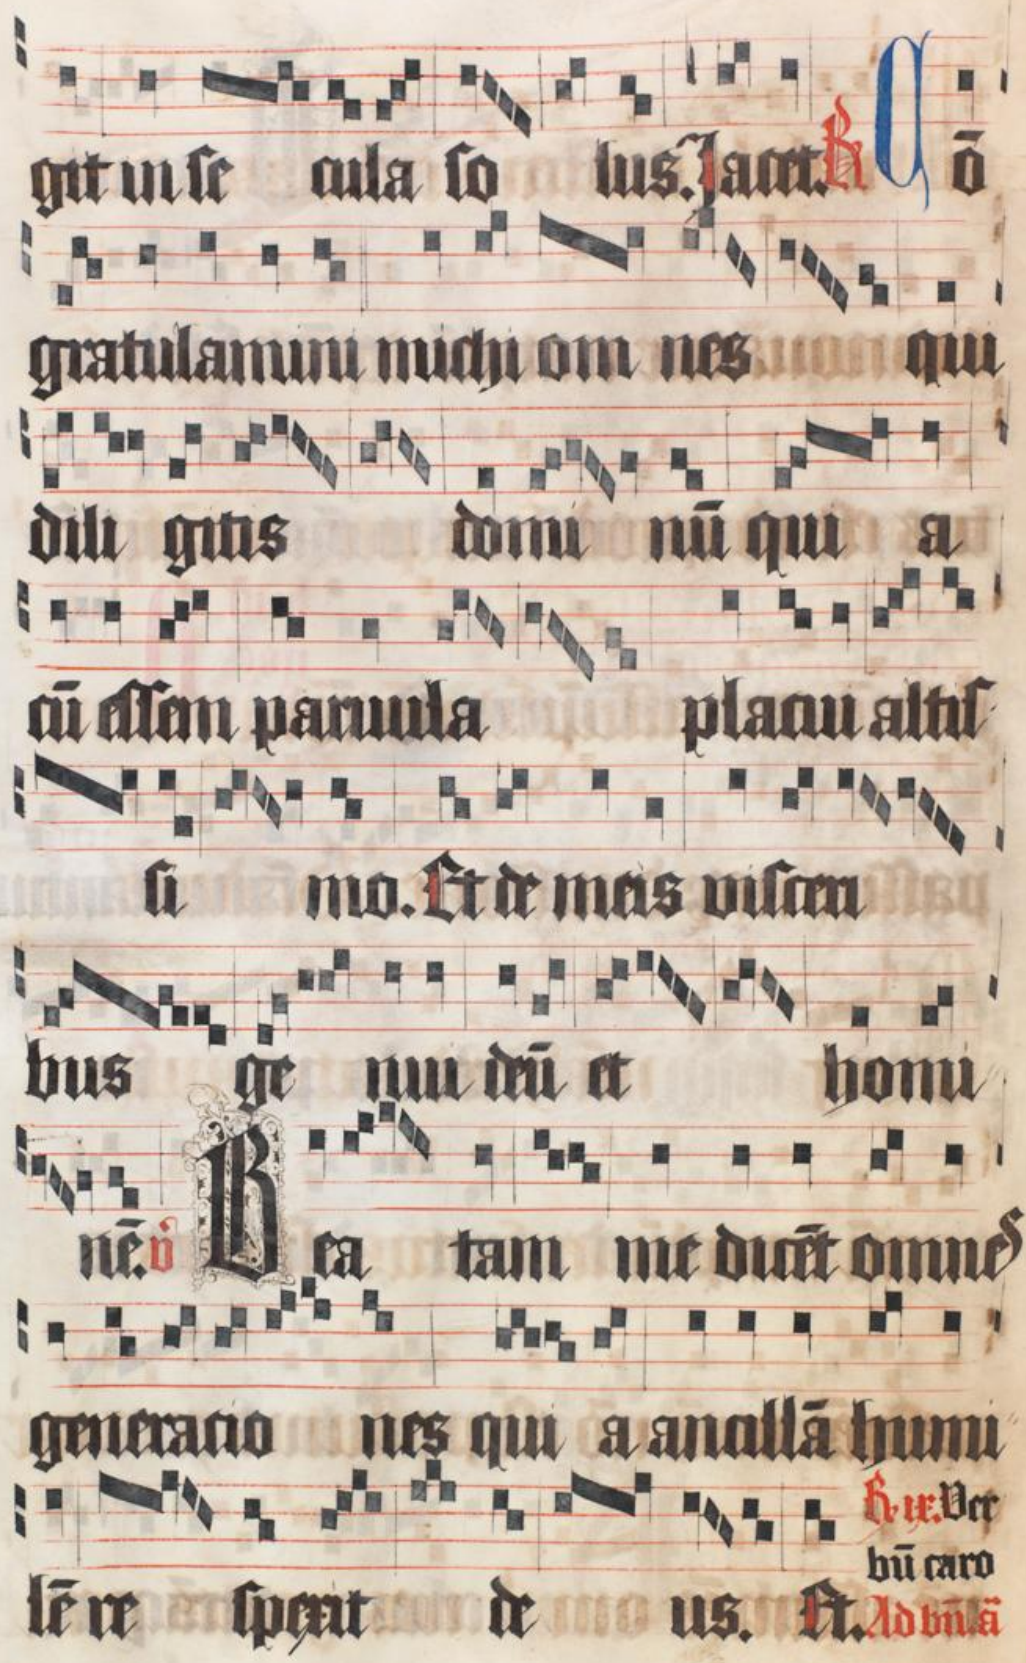 git in se cula so lus. Jacet. R̸ Cō
gratulamini michi om nes qui
dili gitis domi nū qui a
cū essem paruula placui altis
si mo. Et de meis visceri
bus ge nui deū et homi
nē. v̄ Bea tam me dicēt omnes
generacio nes qui a ancillā humi
lē re spexit de us. Et.
R̸. ix. Ver
bū caro
Ad bn̄. ā